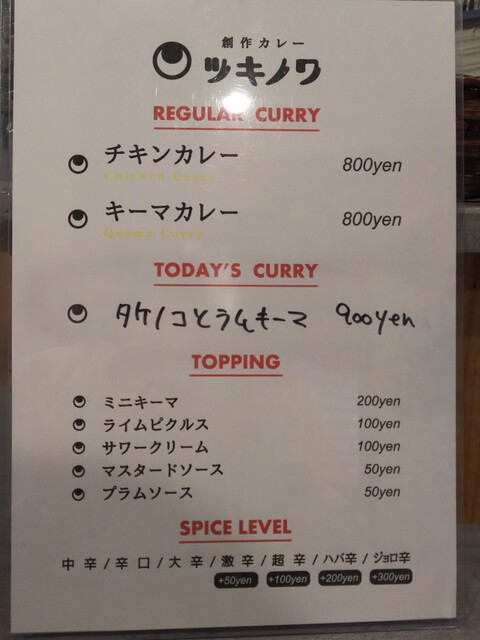 創作カレー
ツキノワ
REGULAR CURRY
チキンカレー 800yen
Chicken Curry
キーマカレー 800yen
Qeema Curry
TODAY'S CURRY
タケノコとラムキーマ 900yen
TOPPING
ミニキーマ 200yen
ライムピクルス 100yen
サワークリーム 100yen
マスタードソース 50yen
プラムソース 50yen
SPICE LEVEL
中辛/辛口/大辛/激辛/超辛/ハバ辛/ジョロ辛
+50yen +100yen +200yen +300yen